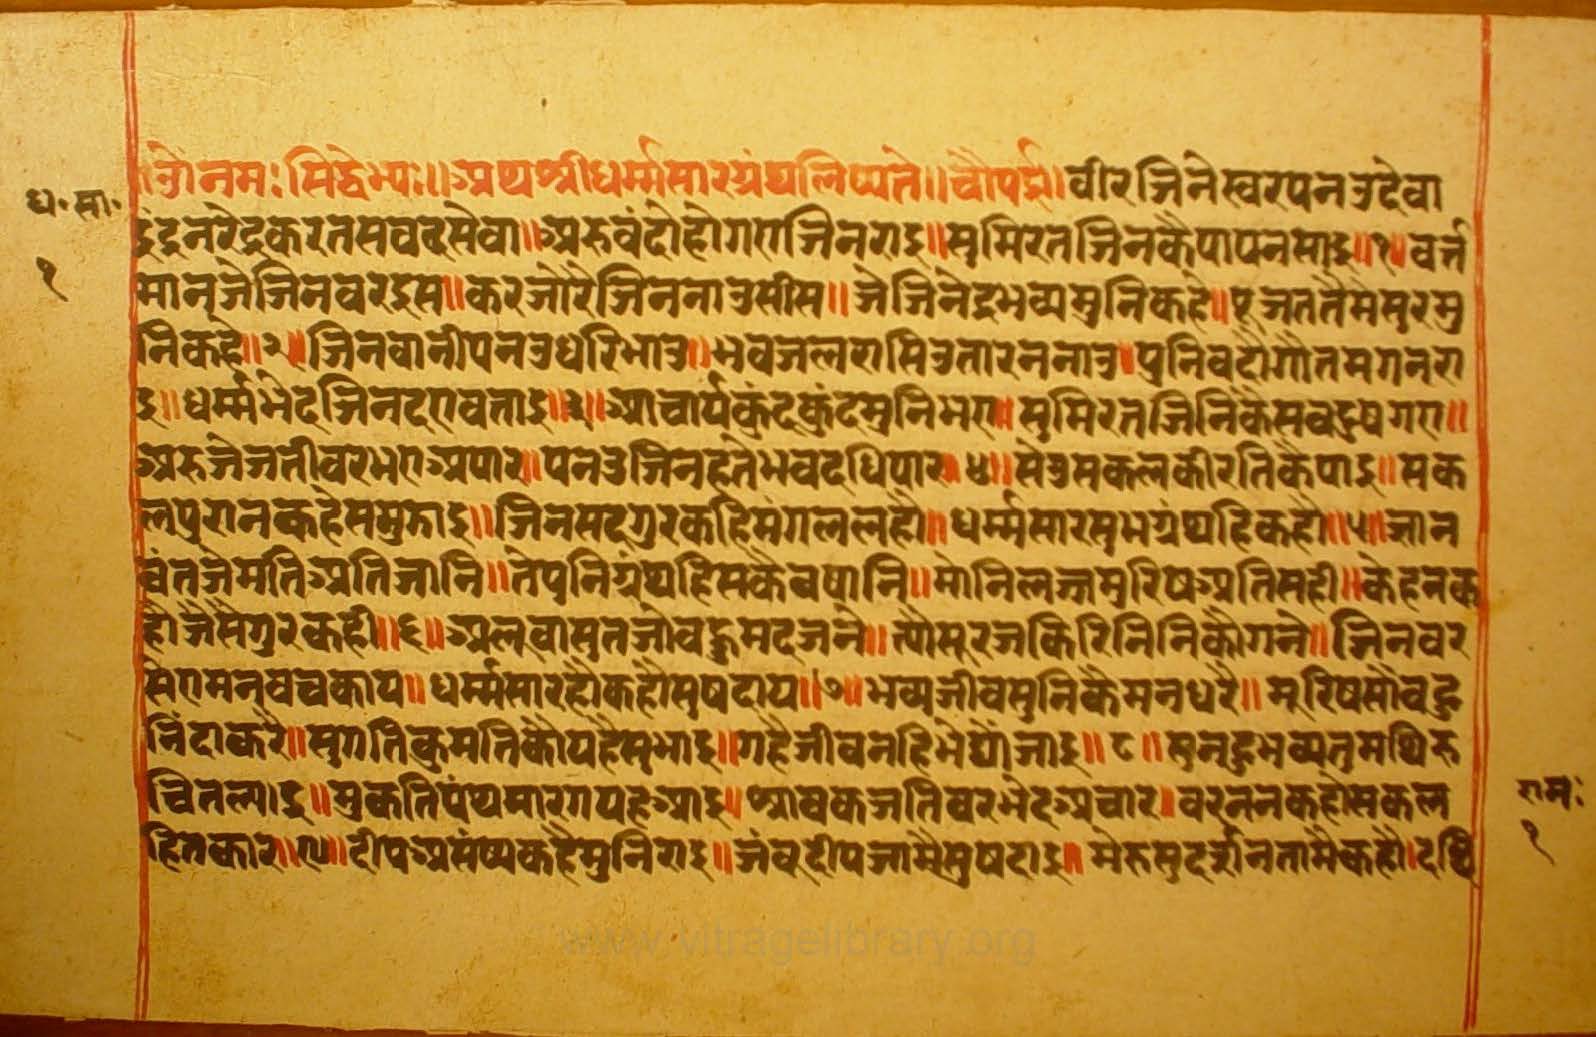 ओंनमःसिद्धेभ्यः॥अथश्रीधर्म्मसारग्रंथलिष्यते॥चौपई॥वीरजिनेस्वरपनउदेवा
ध॰सा॰
इंद्रनरेंद्रकरतसवबसेवा॥अरुवंदौहोगएजिनराइ॥सुमिरतजिनकैपापनसाइ॥१॥वर्त्त
१
मानजेजिनवरइस॥करजोरैजिननाउसीस॥जेजिनेंद्रभव्यमुनिकहे॥पूजततैमैसुरमु
निकहै॥२॥जिनवानीपनउधरिभाउ॥भवजलरासिउतारननाउ॥पुनिवदौगौतमगनरा
इ॥धर्म्मभेदजिनदएवताइ॥३॥आचार्यकुंदकुंदमुनिभए॥सुमिरतजिनिकैसवदुषगए॥
अरुजेजतीवरभएअपार॥पनउजिनहतेभवदधिपार॥४॥सेउसकलकीरतिकैपाइ॥सक
लपुरानकहेसमुझाइ॥जिनसदगुरकहिमंगललहौ॥धर्म्मसारसुभग्रंथहिकहौ॥५॥ज्ञान
वंतजेमतिअतिजानि॥तेपुनिग्रंथहिसकैवषानि॥मोनिलज्जमुरिषअतिसही॥केहनक
हौजैसैगुरकही॥६॥अलूवासुतजोवहुमदजने॥त्यौसुरजकिरिनिनिकौगने॥जिनवर
सेएमनवचकाय॥धर्म्मसारहौकहौसुषदाय॥७॥भव्यजीवसुनिकैमनधरै॥मूरिषसोवहु
निंदाकरै॥सुगतिकुमतिकौयहैसुभाइ॥गहैजीवनहिमेट्यौजाइ॥८॥सुनहुभव्यतुमथिरु
चितल्याइ॥मुकतिपंथमारगयहआइ॥श्रावकजतिवरभेदअचार॥वरननकहोसकल
हितकार॥९॥दीपअसंष्यकहैमुनिराइ॥जंबूदीपजामैसुषदाइ॥मेरुसुदर्शनतामैकहौ॥दछि
रामः
१
www.vitragelibrary.org